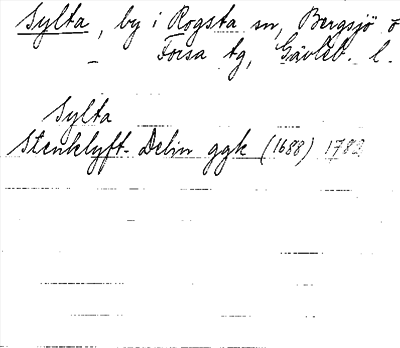 Sylta, by i Rogsta sn, Bergsjö o
Forsa tg, Gävleb. l.
Sylta
Stenklyft- Delin ggk (1688) 1783